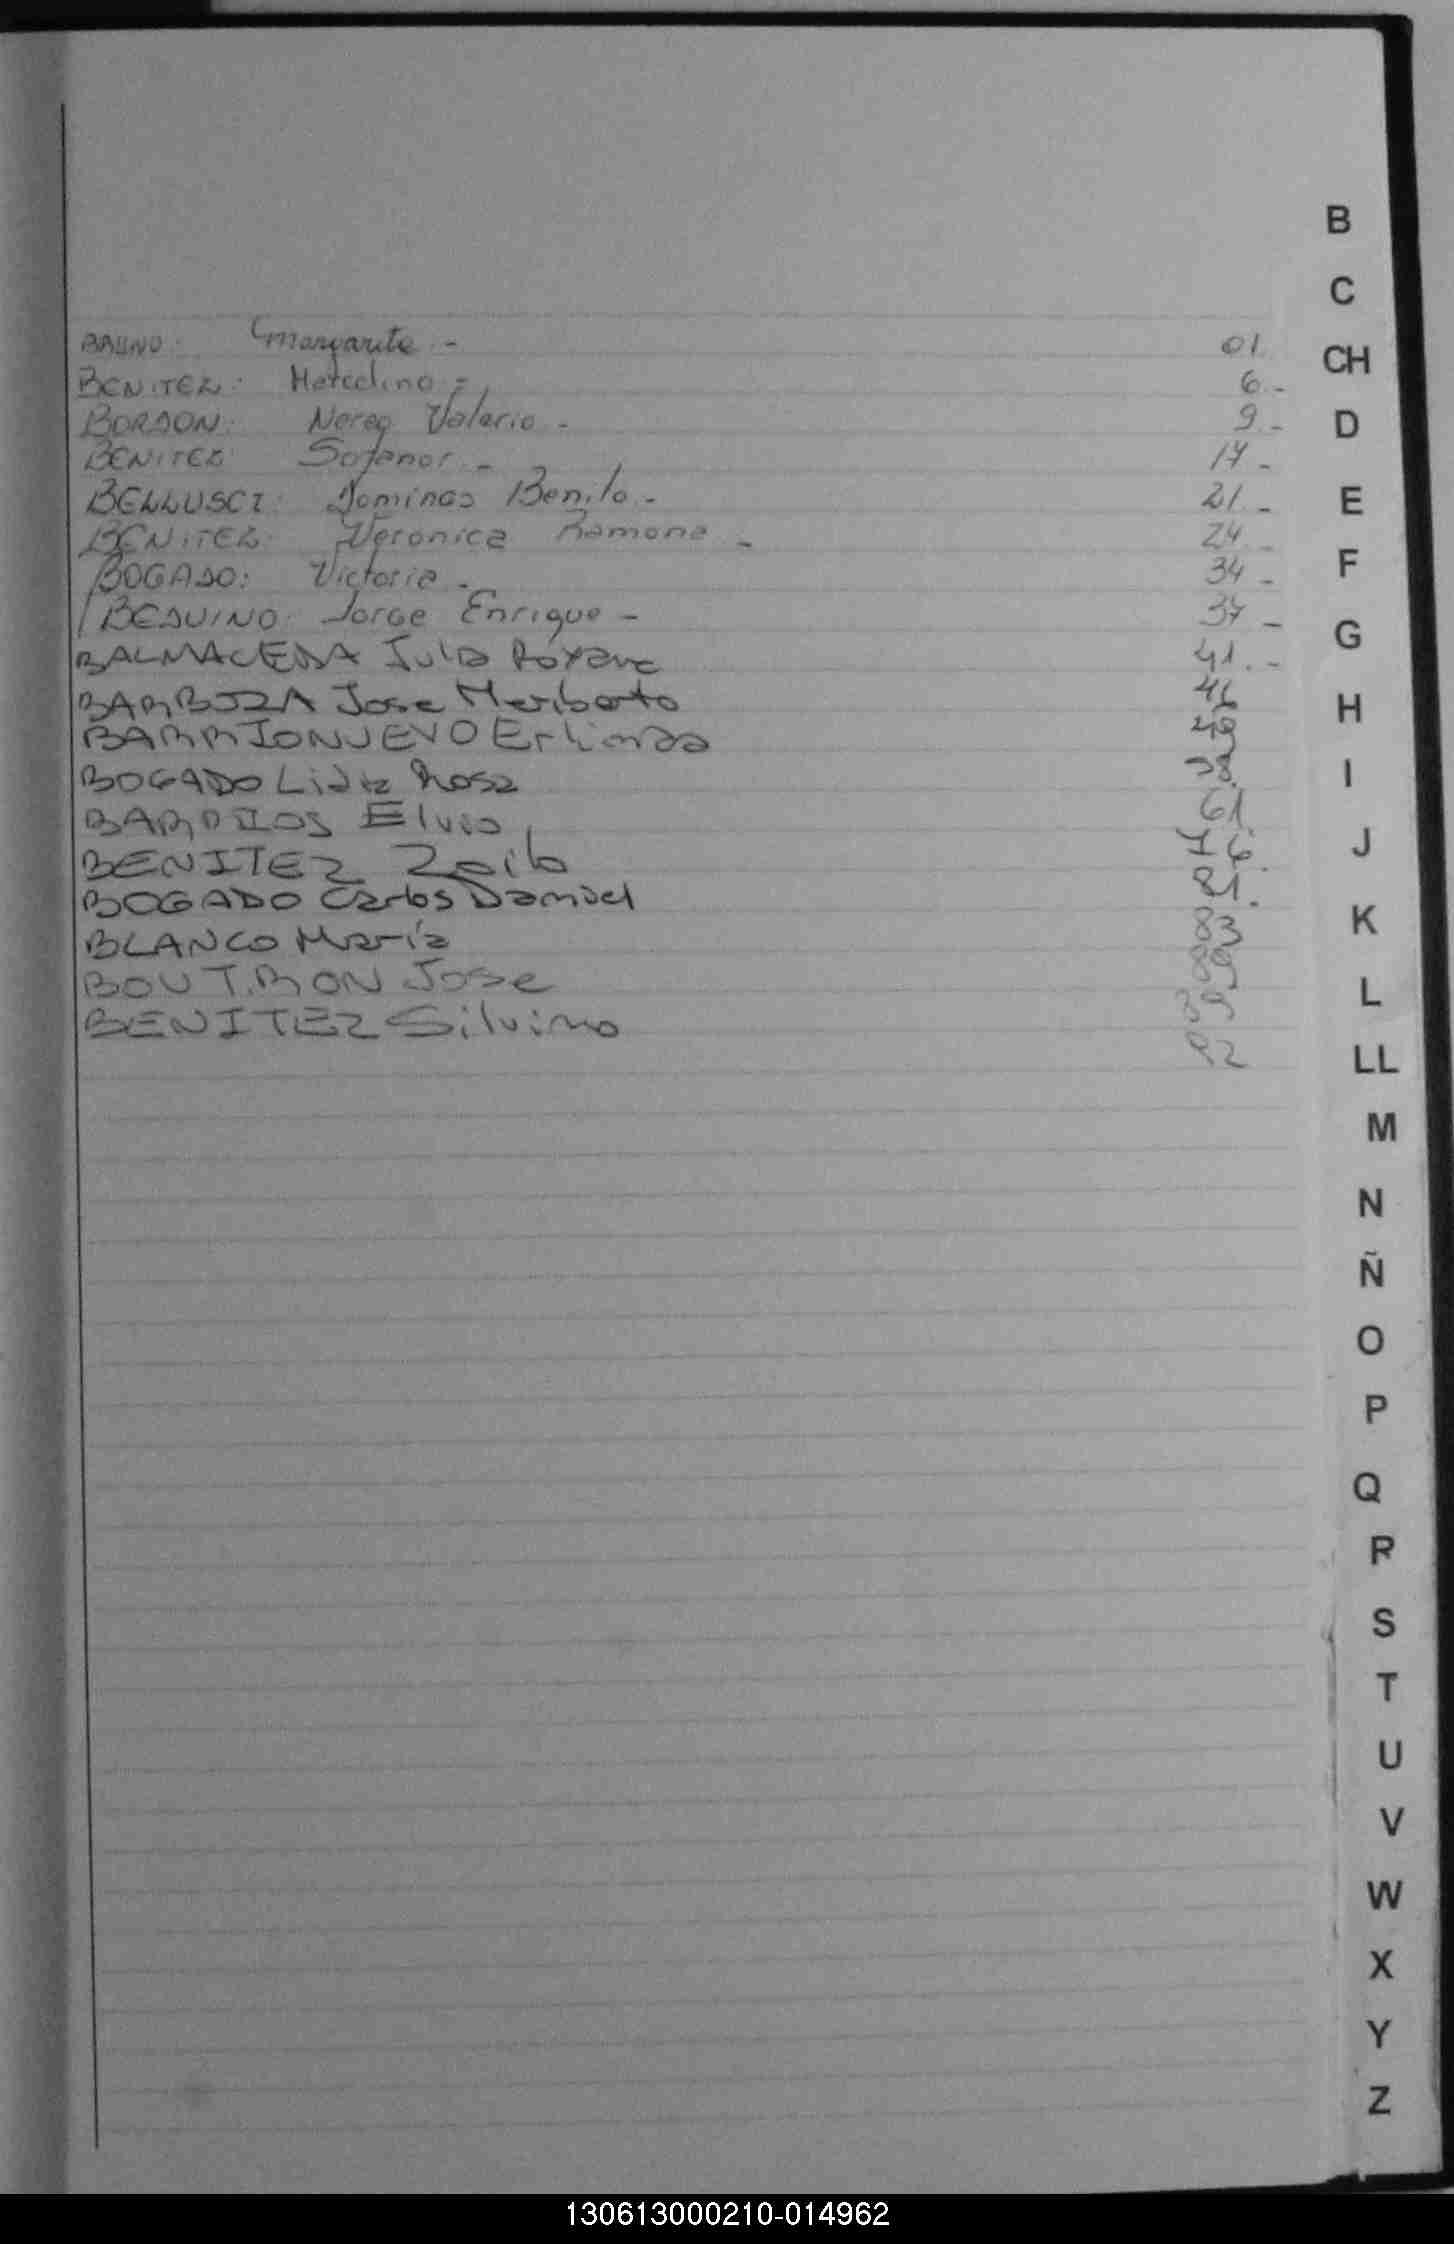 Margarita - 01.
BENITEZ: Marcelino - 6. -
BORDON: Nereo Valerio - 9. -
BENITEZ: Sofanor. - 17 -
BELLUSCI: Domingo Benito - 21. -
BENITEZ: Veronica Ramona - 24 -
BOGADO: Victoria - 34 -
BEDUINO: Jorge Enrique - 37 -
BALMACEDA Julia Roxana 41. -
BARBOZA Jose Heriberto 46
BARRIONUEVO
BOGADO Lidia Rosa
BARRIOS Elvio 61
BENITEZ Zoilo 76.
BOGADO Carlos Damuel 81.
BLANCO María 83
BOUTRON Jose
BENITEZ Silvino
92
B
C
CH
D
E
F
G
H
I
J
K
L
LL
M
N
Ñ
O
P
Q
R
S
T
U
V
W
X
Y
Z
130613000210-014962